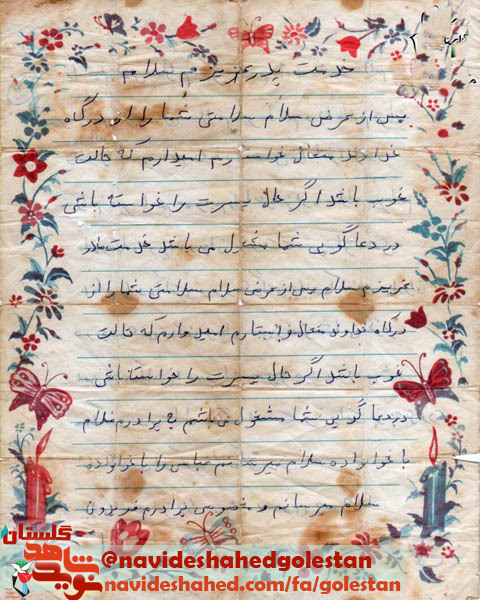 خدمت پدر عزیزم سلام
پس از عرض سلام سلامتی شما را از درگاه
خداوند متعال خواستارم امیدارم که حالت
خوب باشد اگر حال پسرت را خواسته باشی
در دعا گویی شما مشغول می باشد خدمت مادر
عزیزم سلام پس از عرض سلام سلامتی شما را از
درگاه خداوند متعال خواستارم امیدوارم که حالت
خوب باشد اگر حال پسرت را خواسته باشی
در دعا گویی شما مشغول می باشم به برادرم غلام
با خانواده سلام میرسانم عباس را با خانواده
سلام میرسانم و مخصوص برادرم فریدون
گلستان
نوید شاهد
@navideshahedgolestan
navideshahed.com/fa/golestan